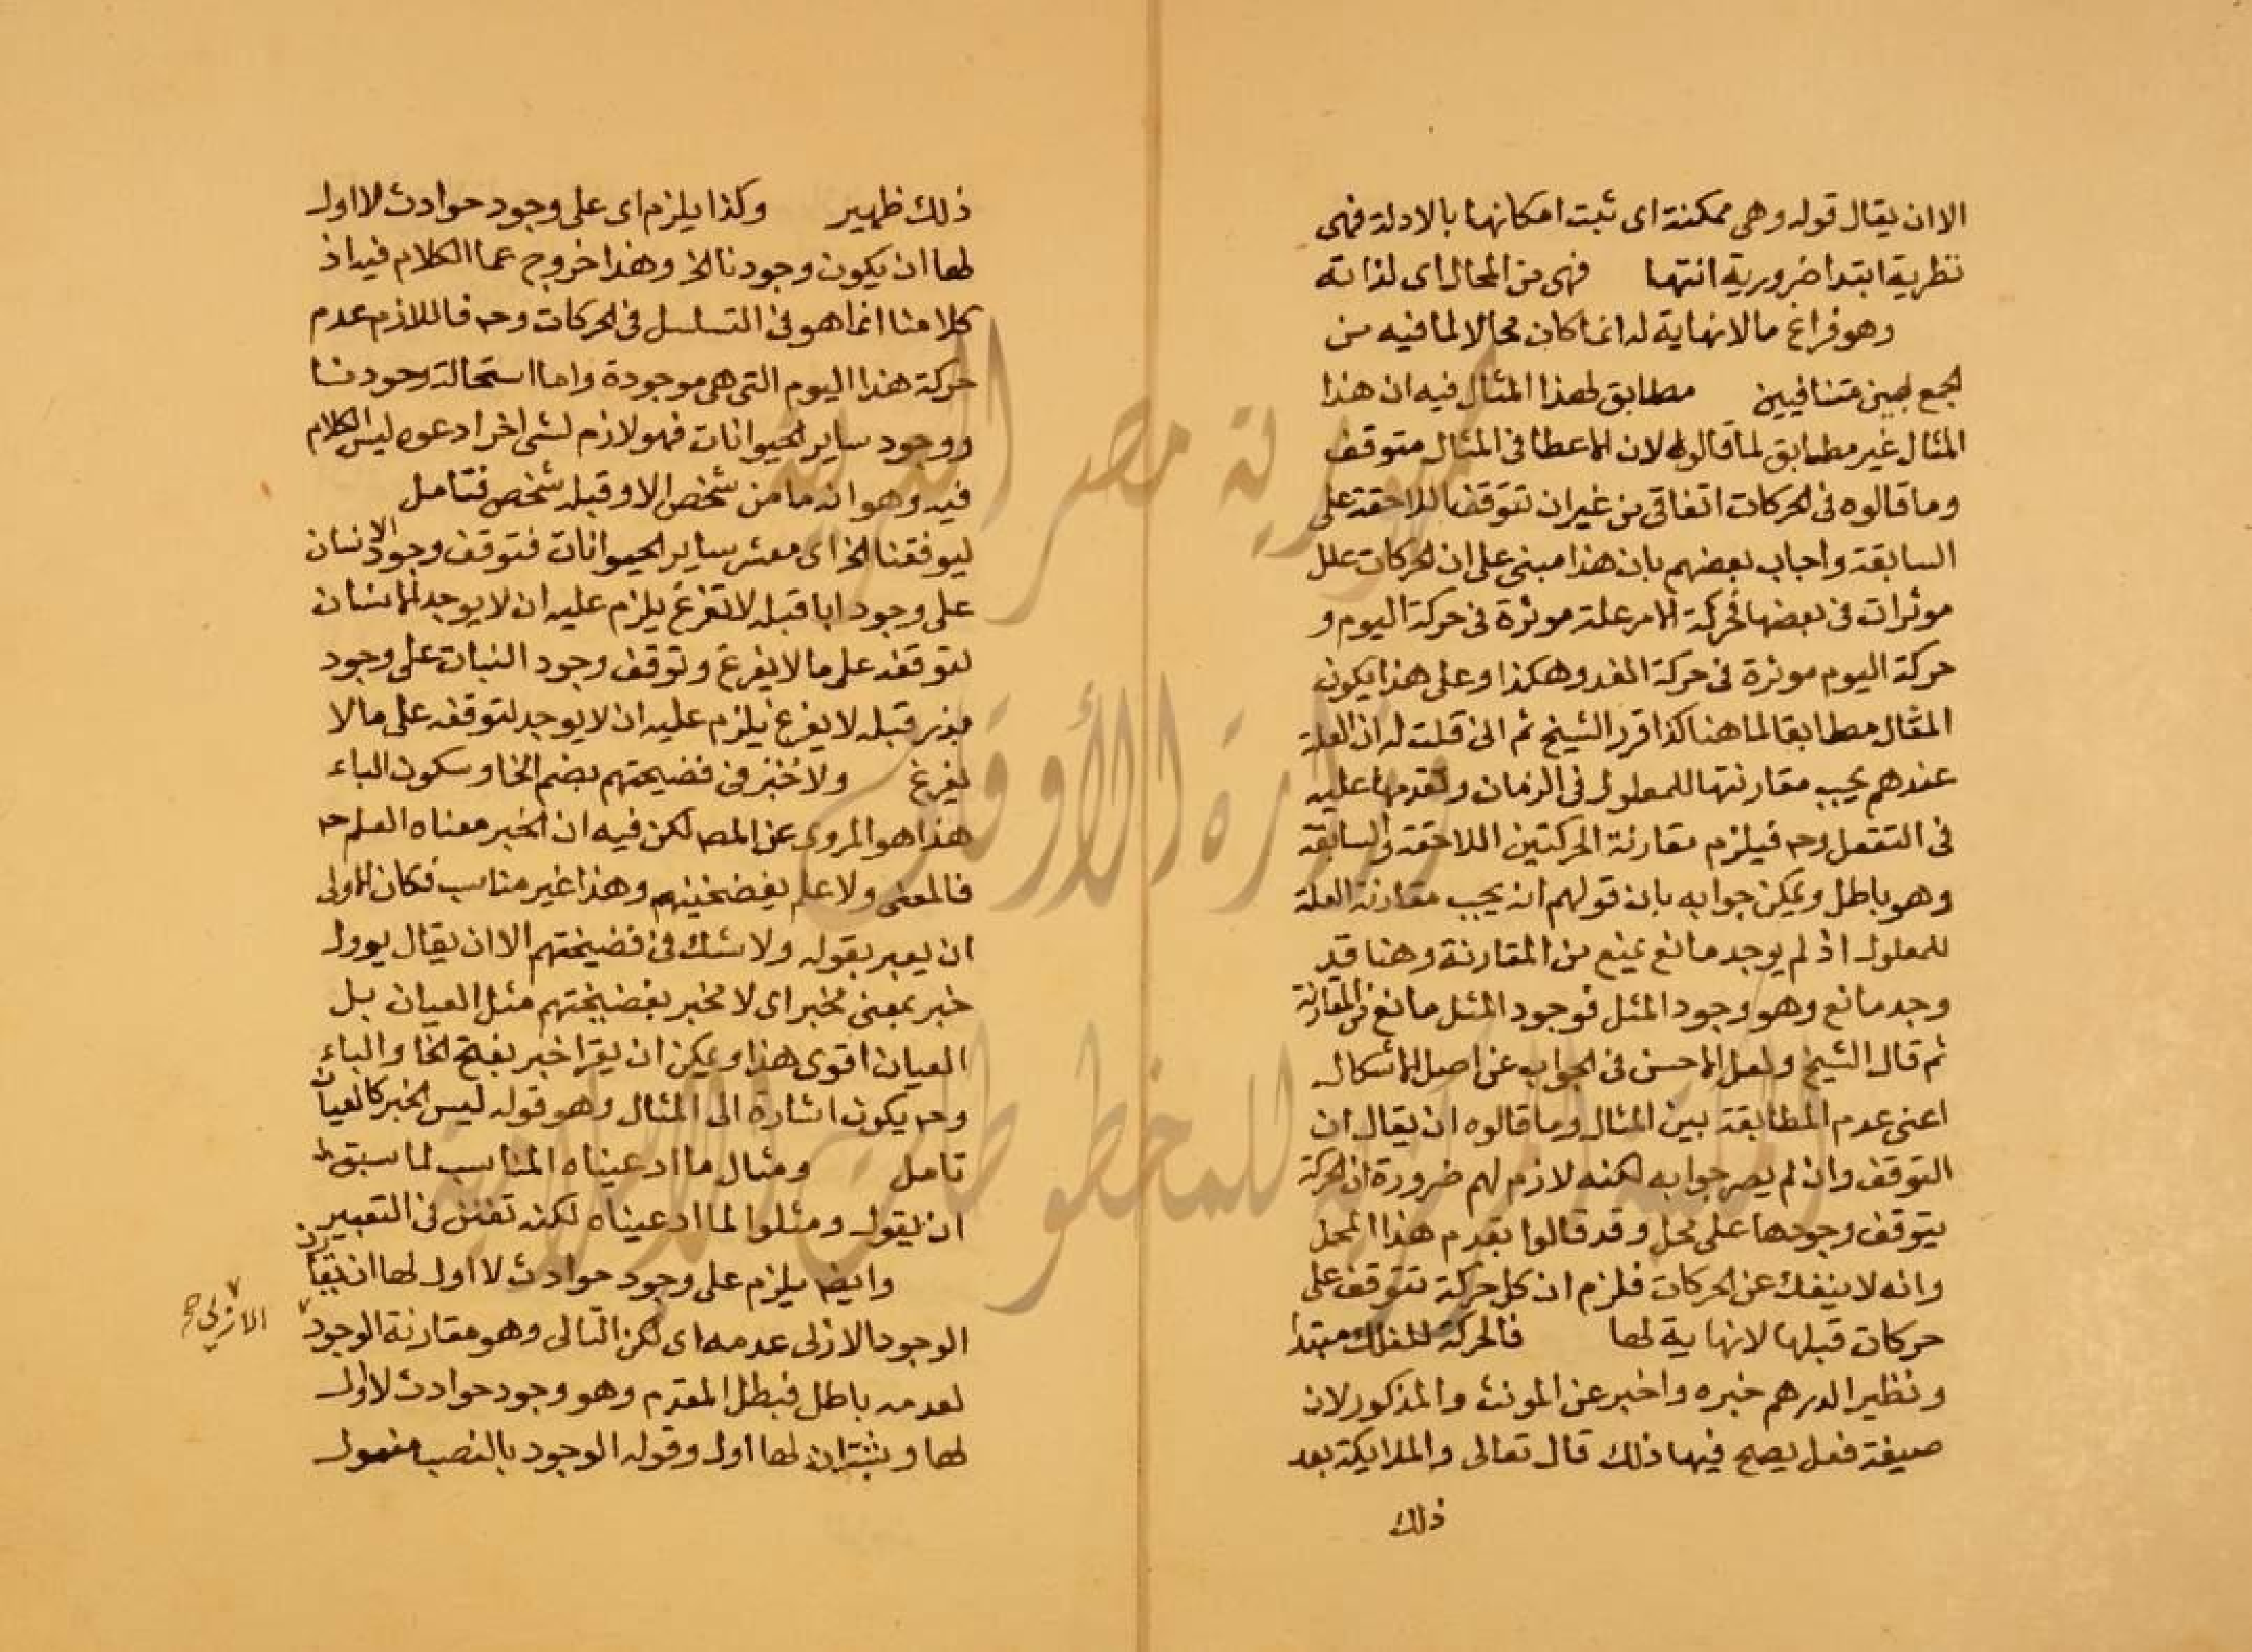 الا ان يقال قوله وهى ممكنة اى ثبت امكانها بالادلة فهى
نظرية ابتدا ضرورية انتها فهى من المحال اى لذاته
وهو فراغ ما لا نهاية له انما كان محالا لما فيه من
الجمع بين متنافيين مطابق لهذا المثال فيه ان هذا
المثال غير مطابق لما قالوه لان الاعطا فى المثال متوقف
وما قالوه فى الحركات اتفاقى من غير ان تتوقف اللاحقة على
السابقة واجاب بعضهم بان هذا مبنى على ان الحركات علل
موثرات فى بعضها فحركة الامر علة موثرة فى حركة اليوم و
حركة اليوم موثرة فى حركة الغد وهكذا وعلى هذا يكون
المثال مطابقا لما هنا كذا قرر الشيخ ثم انى قلت له ان العلة
عندهم يجب مقارنتها للمعلول فى الزمان وتقدمها عليه
فى التعقل وح فيلزم مقارنة الحركتين اللاحقة والسابقة
وهو باطل ويمكن جوابه بان قولهم انه يجب مقارنة العلة
للمعلول اذ لم يوجد مانع يمنع من المقارنة وهنا قد
وجد مانع وهو وجود المثل فوجود المثل مانع من المقارنة
ثم قال الشيخ ولعل الاحسن فى الجواب عن اصل الاشكال
اعنى عدم المطابقة بين المثال وما قالوه ان يقال ان
التوقف وان لم يصرحوا به لكنه لازم لهم ضرورة ان الحركة
يتوقف وجودها على محل وقد قالوا بقدم هذا المحل
وانه لا ينفك عن الحركات فلزم ان كل حركة تتوقف على
حركات قبلها لا نهاية لها فالحركة للفلك مبتدا
ونظير الدرهم خبره واخبر عن المونث والمذكور لان
صيغة فعيل يصح فيها ذلك قال تعالى والملايكة بعد
ذلك
ذلك ظهير وكذا يلزم اى على وجود حوادث لا اول
لها ان يكون وجودنا الخ وهذا خروج عما الكلام فيه اذ
كلامنا انما هو فى التسلسل فى الحركات وح فاللازم عدم
حركة هذا اليوم التى هى موجودة واما استحالة وجودنا
ووجود ساير الحيوانات فهو لازم لشى اخر ادعوه ليس الكلام
فيه وهو انه ما من شخص الا وقبله شخص فتامل
ليوفقنا الخ اى معشر ساير الحيوانات فتوقف وجود الانسان
على وجود ابا قبله لا تفرغ يلزم عليه ان لا يوجد الانسان
لتوقفه على ما لا يفرغ وتوقف وجود النبات على وجود
بذر قبله لا يفرغ يلزم عليه ان لا يوجد لتوقفه على ما لا
يفرغ ولا خُبْرَ فى فضيحتهم بضم الخا وسكون الباء
هذا هو المروى عن المص لكن فيه ان الخبر معناه العلم ح
فالمعنى ولا علم بفضيحتهم وهذا غير مناسب فكان الاولى
ان يعبر بقوله ولا شك فى فضيحتهم الا ان يقال يوول
خبر بمعنى مخبر اى لا مخبر بفضيحتهم مثل العيان بل
العيان اقوى هذا ويمكن ان يقرا خبر بفتح الخا والباء
وح يكون اشارة الى المثال وهو قوله ليس الخبر كالعيان
تامل ومثال ما ادعيناه المناسب لما سبق
ان يقول ومثلوا لما ادعيناه لكنه تفنن فى التعبير
وايض يلزم على وجود حوادث لا اول لها ان يقارن
الوجود الازلى عدمه اى لكن التالى وهو مقارنة الوجود
الازلى صح
لعدمه باطل فبطل المقدم وهو وجود حوادث لا اول
لها ويثبت ان لها اول وقوله الوجود بالنصب مفعول
جمهورية مصر العربية
وزارة الأوقاف
المكتبة المركزية للمخطوطات الإسلامية